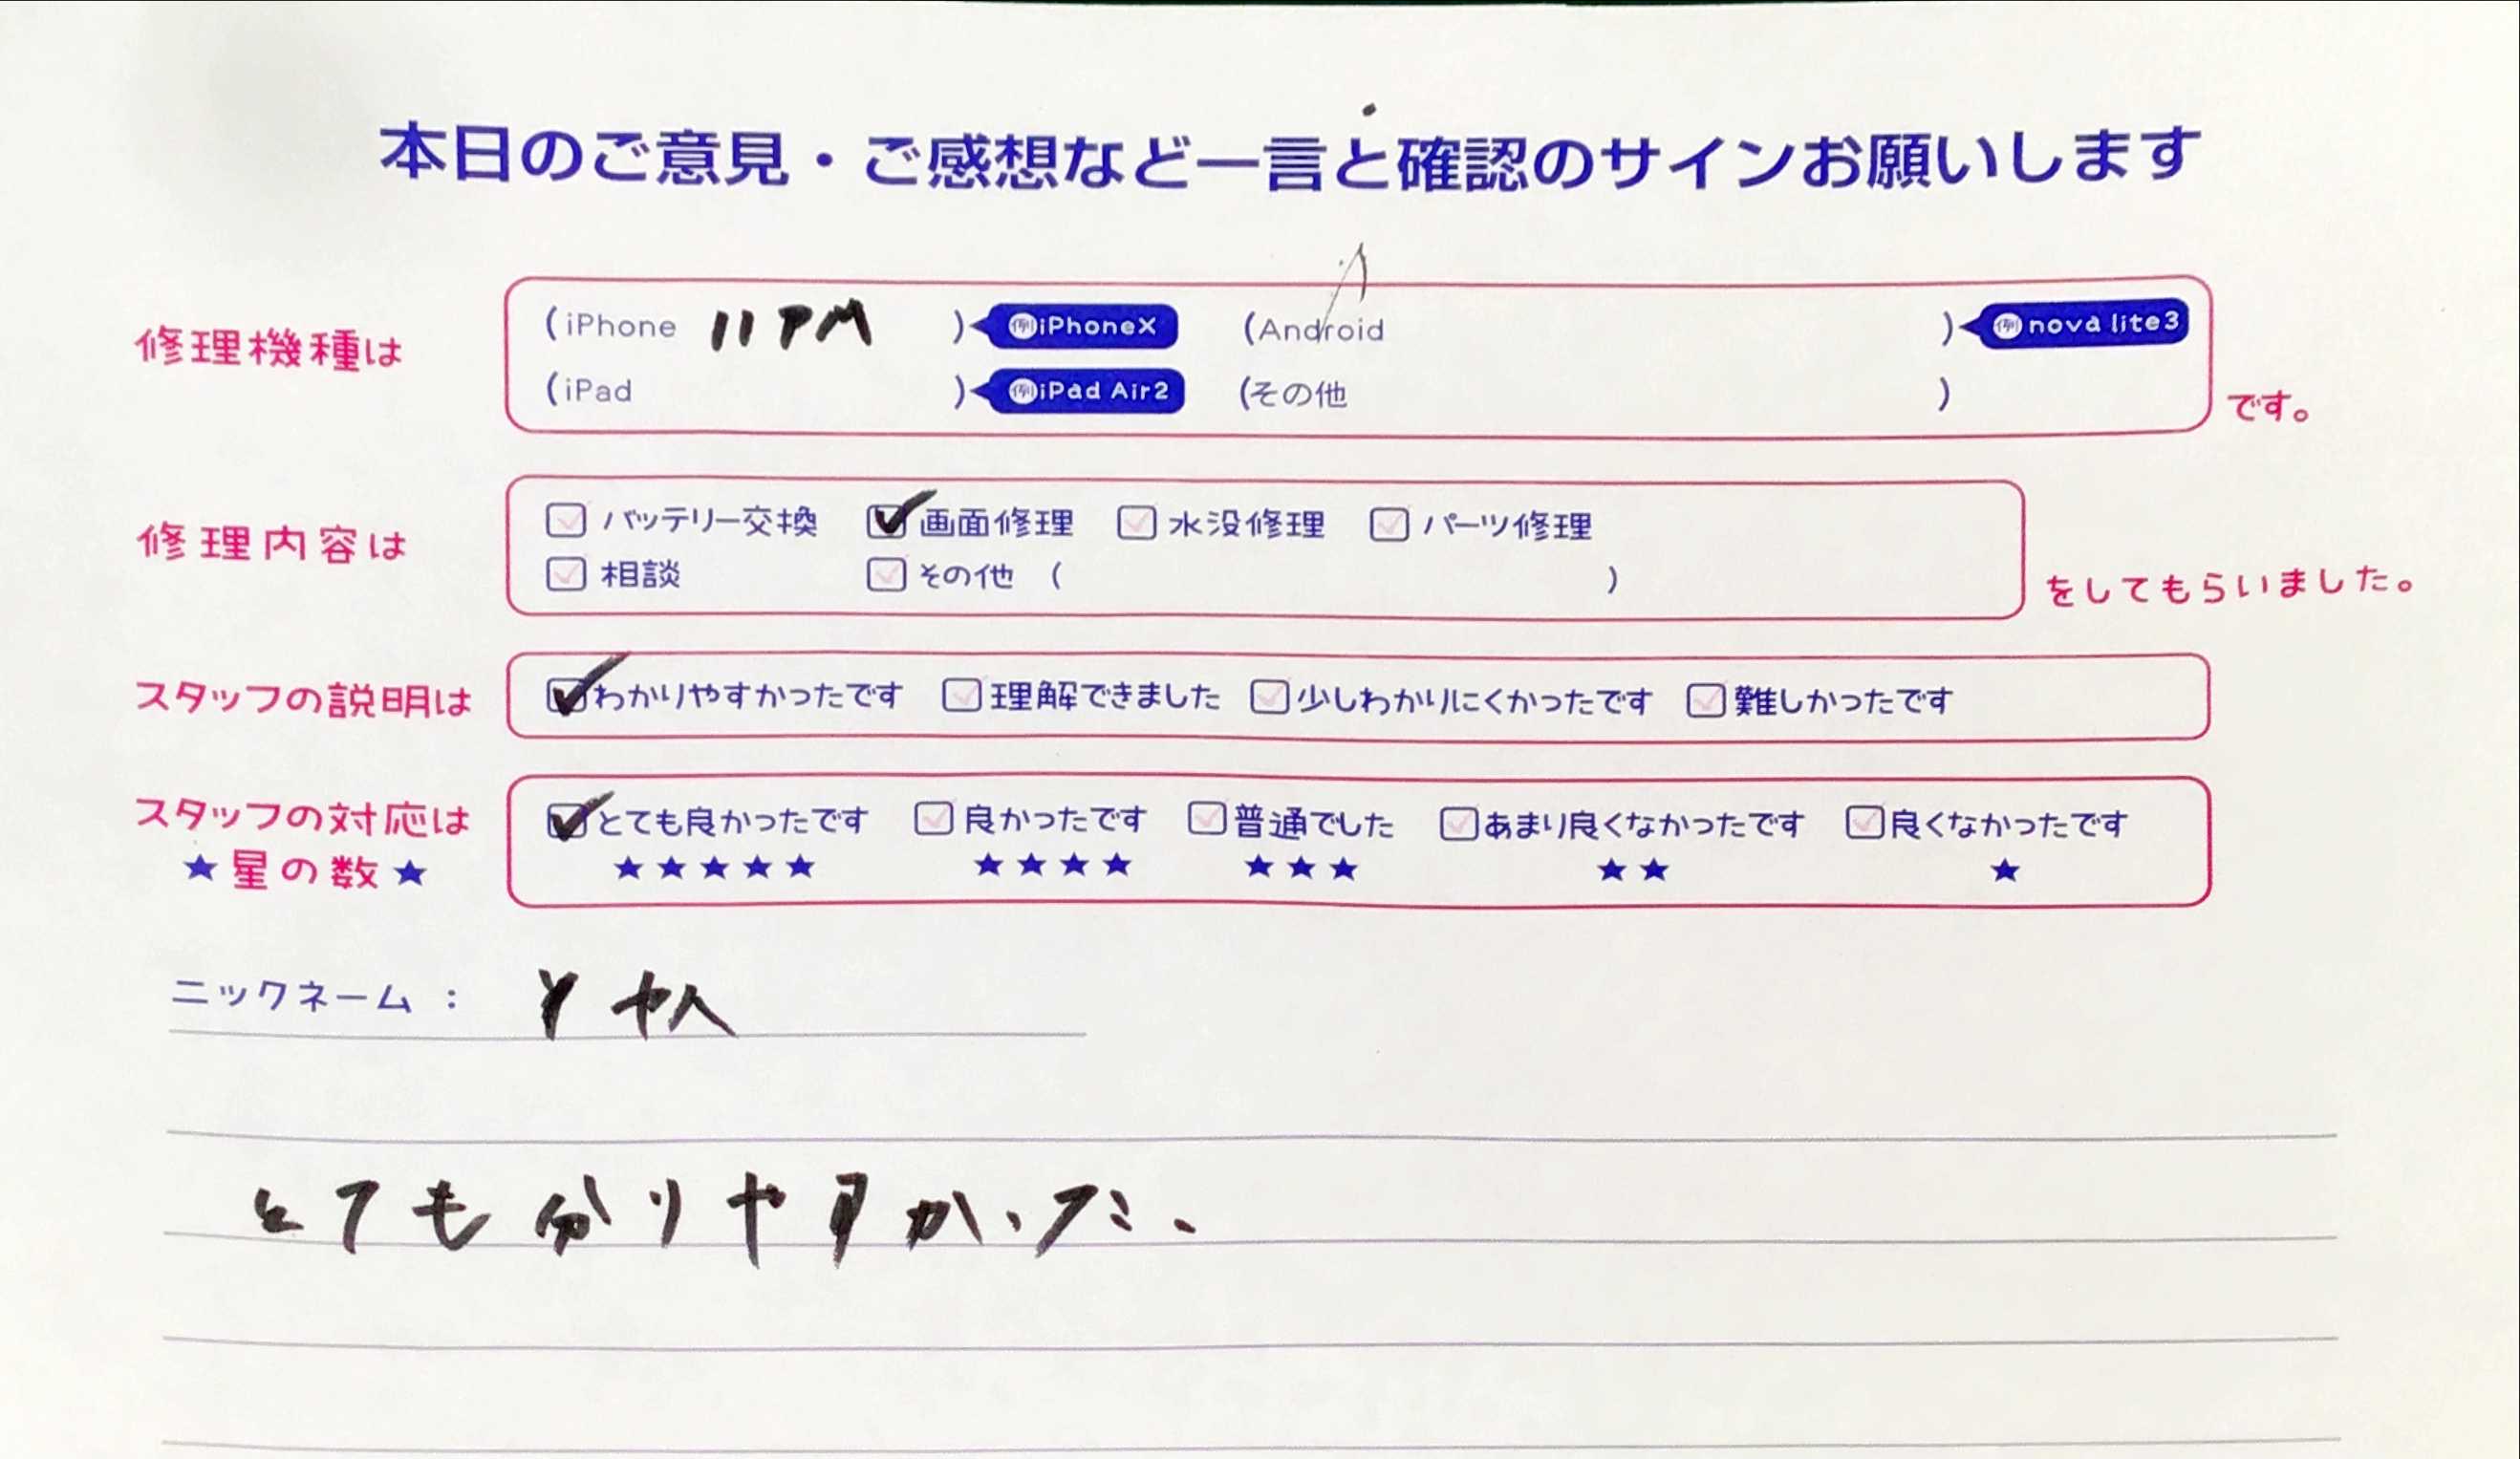 本日のご意見・ご感想など一言と確認のサインお願いします
修理機種は
(iPhone 11 PM ) 例iPhoneX (Android ) 例nova lite3
(iPad ) 例iPad Air2 (その他 )
です。
修理内容は
バッテリー交換 画面修理 水没修理 パーツ修理
相談 その他 ( )
をしてもらいました。
スタッフの説明は
わかりやすかったです 理解できました 少しわかりにくかったです 難しかったです
スタッフの対応は
★星の数★
とても良かったです 良かったです 普通でした あまり良くなかったです 良くなかったです
★★★★★ ★★★★ ★★★ ★★ ★
ニックネーム : Y
とても分りやすかった。